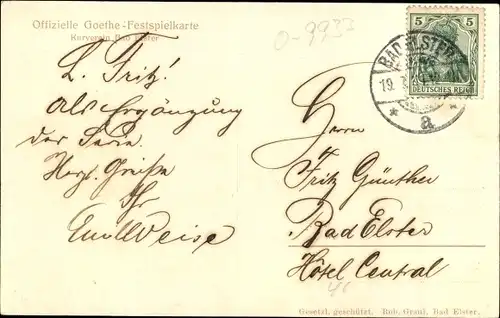 Offizielle Goethe-Festspielkarte
Kurverein Bad Elster
O-9933
L. Fritz!
Als Ergänzung
der Serie.
Herzl. Grüße
Ihr
Emil Weise
5 5
DEUTSCHES REICH
BAD ELSTER
19. 
* a *
Herrn
Fritz Günther
Bad Elster
Hôtel Central
Gesetzl. geschützt. Rob. Graul, Bad Elster.